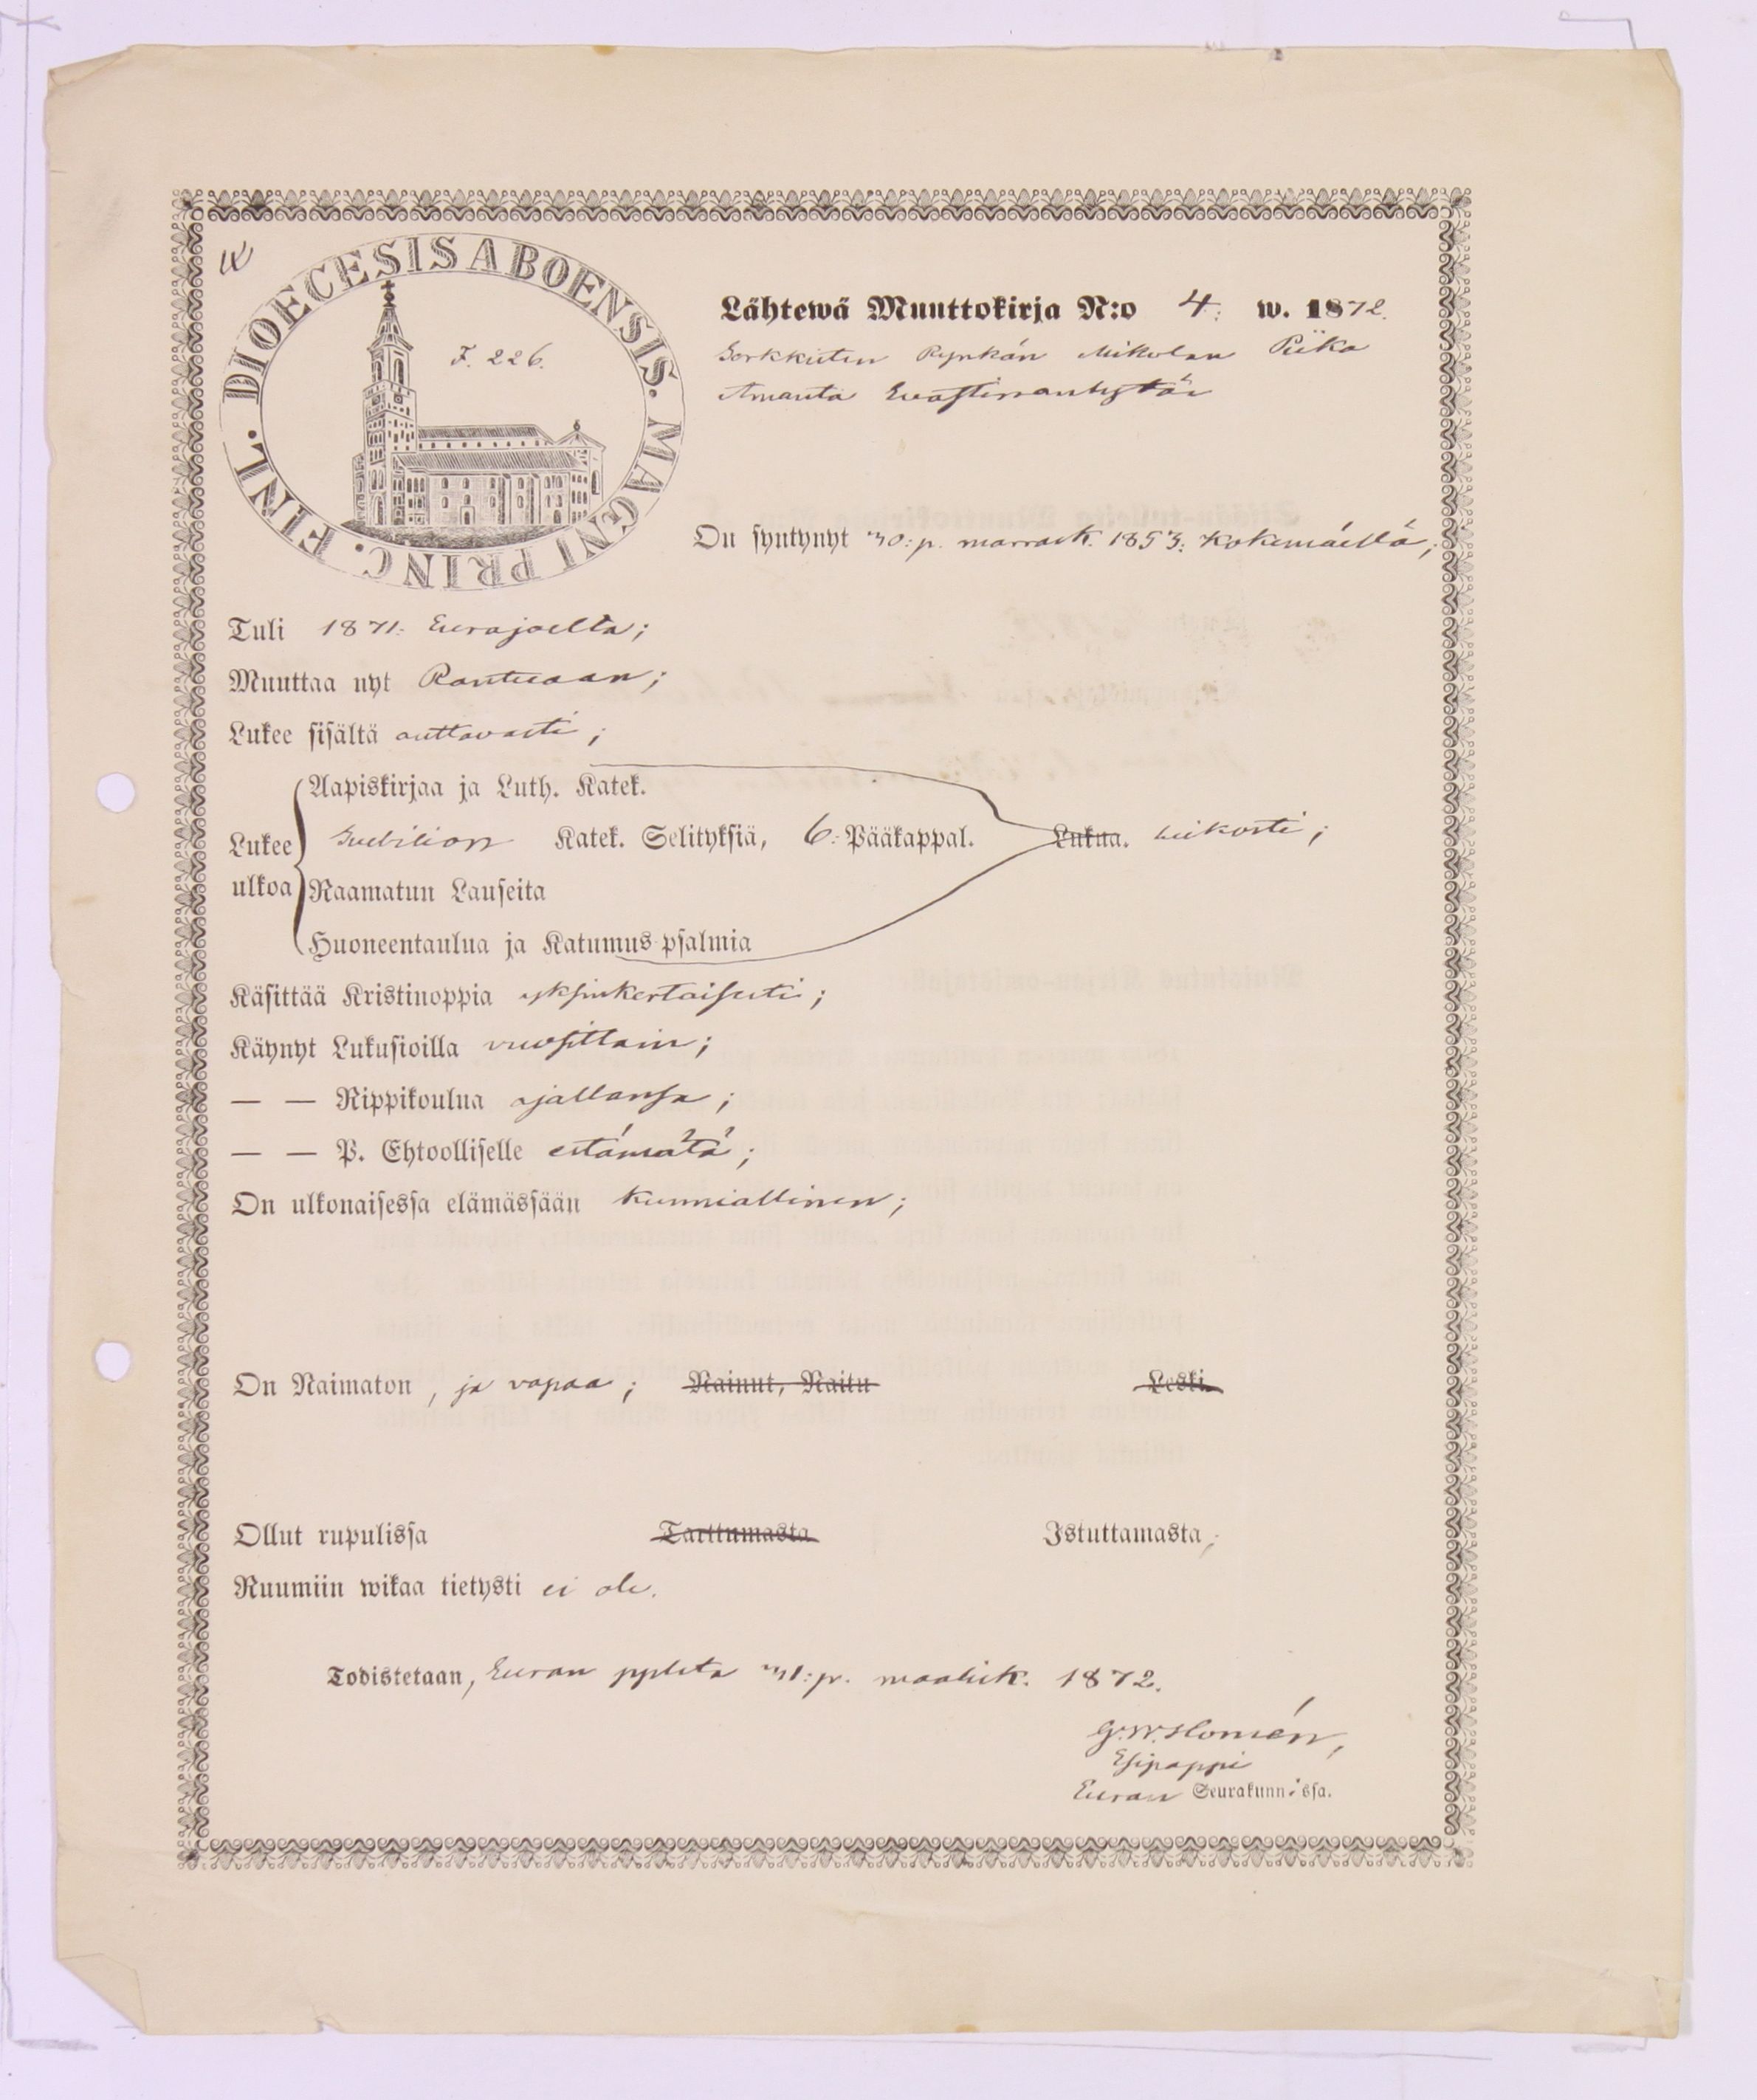 DIOECESIS ABOENSIS. MAGNI PRINC. FINL.
F. 226.
Lähtewä Muuttokirja N:o 4: w. 1872.
Sorkkisten Mikolan Piika
Amanta
On syntynyt 30:p. marrask. 1853: Kokemäellä;
Tuli 1871: Eurajoelta;
Muuttaa nyt Rantuaan;
Lukee sisältä auttavasti;
Aapiskirjaa ja Luth. Katek.
Lukee ulkoa Svebilion Katek. Selityksiä, 6: Pääkappal. Lukua. heikosti;
Raamatun Lauseita
Huoneentaulua ja Katumus-psalmia
Käsittää Kristinoppia yksinkertaisesti;
Käynyt Lukusioilla vuosittain;
— — Rippikoulua ajallansa;
— — P. Ehtoolliselle estämätä;
On ulkonaisessa elämässään kunniallinen;
On Naimaton, ja vapaa; Nainut, Naitu Leski.
Ollut rupulissa Tarttumasta Istuttamasta;
Ruumiin wikaa tietysti ei ole.
Todistetaan, Euran pplsta 31:p. maalisk. 1872.
G. W. Homén,
Esipappi
Euran Seurakunnissa.